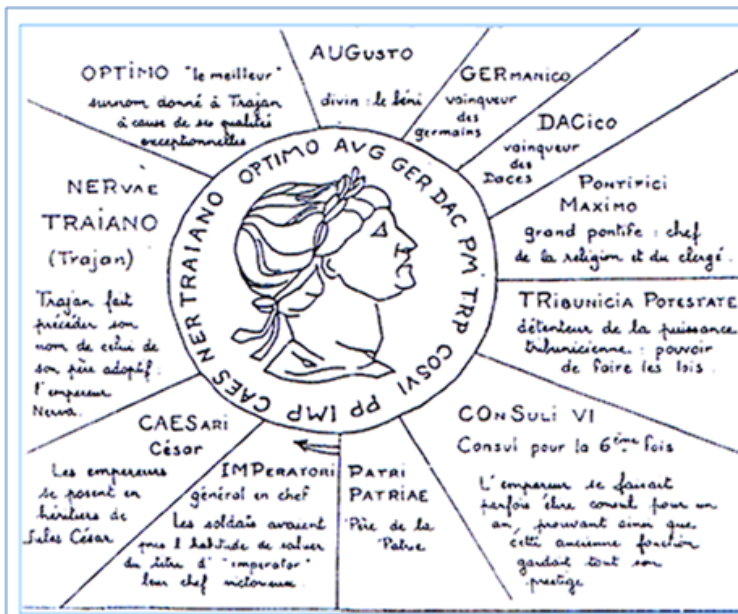 AUGUSTO
divin : le béni
GERmanico
vainqueur
des
germains
DACico
vainqueur
des
Daces
PONTIFICI
MAXIMO
grand pontife : chef
de la religion et du clergé.
TRIbUNICIA POTESTATE
détenteur de la puissance
tribunicienne : pouvoir
de faire les lois.
CONSULI VI
Consul pour la 6ème fois
L'empereur se faisait
parfois élire consul pour un
an, prouvant ainsi que
cette ancienne fonction
gardait tout son
prestige
PATRI
PATRIAE
Père de la
Patrie
IMPERATORI
général en chef
Les soldats avaient
pris l'habitude de saluer
du titre d'"imperator"
leur chef victorieux.
CAESARI
César
Les empereurs
se posent en
héritiers de
Jules César
NERVAE
TRAIANO
(Trajan)
Trajan fait
précéder son
nom de celui de
son père adoptif :
l'empereur
Nerva.
OPTIMO "le meilleur"
surnom donné à Trajan
à cause de ses qualités
exceptionnelles
IMP CAES NER TRAIANO OPTIMO AVG GER DAC PM TRP COSVI PP